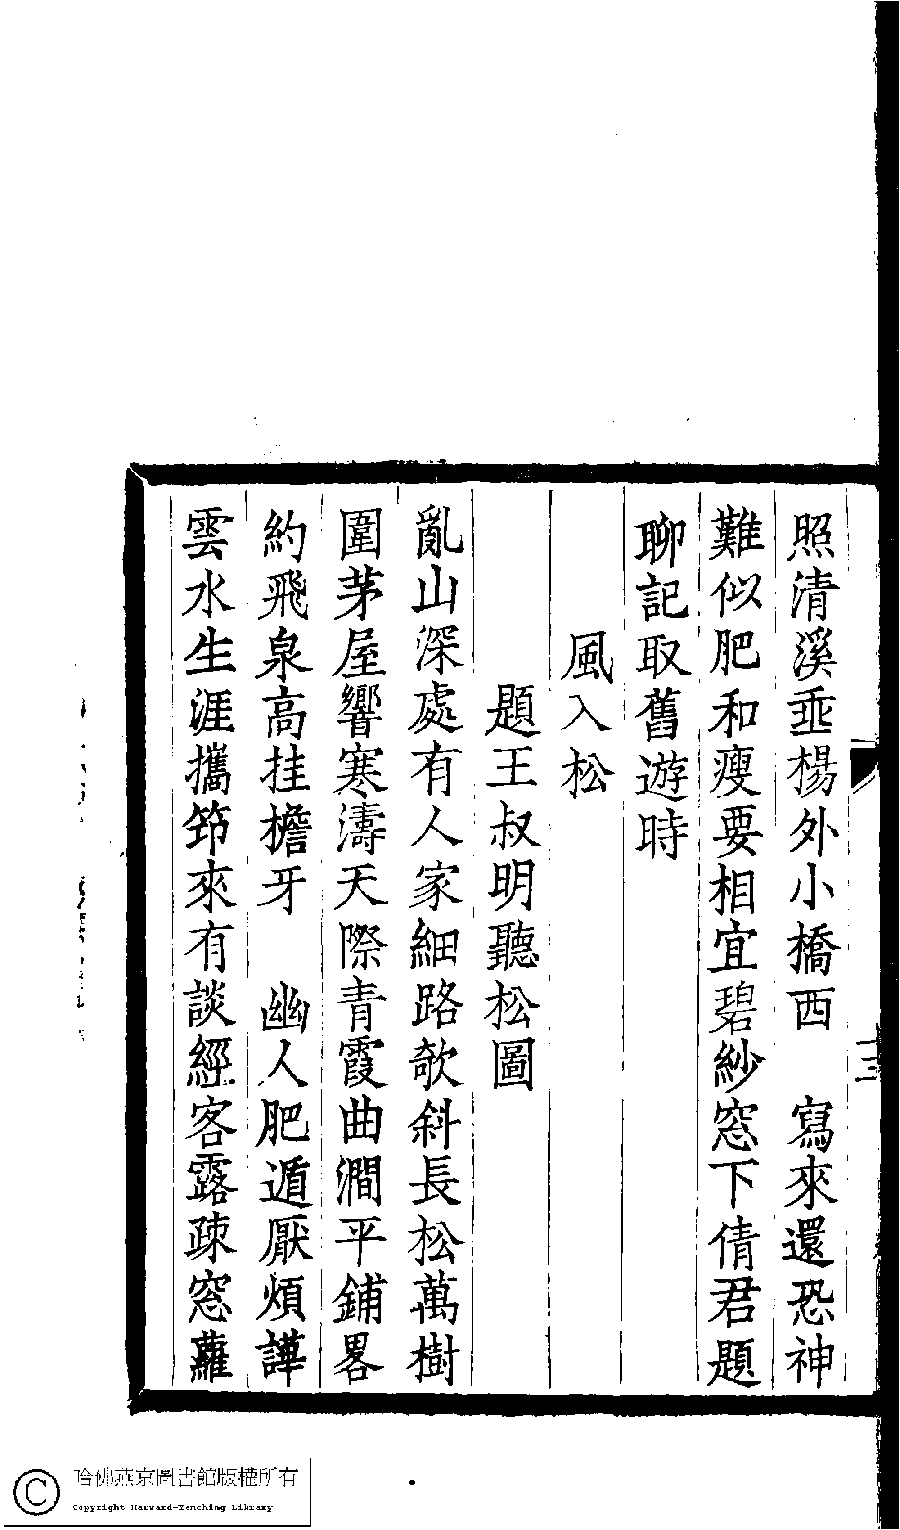 照清溪垂楊外小橋西　寫來還恐神
難似肥和瘦要相宜碧紗窓下倩君題
聊記取舊遊時
風入松
題王叔明聽松圖
亂山深處有人家細路欹斜長松萬樹
圍茅屋響寒濤天際青霞曲澗平鋪畧
約飛泉高挂檐牙　幽人肥遁厭煩譁
雲水生涯攜笻來有談經客露疎窓蘿
哈佛燕京圖書館版權所有
Copyright Harvard-Yenching Library